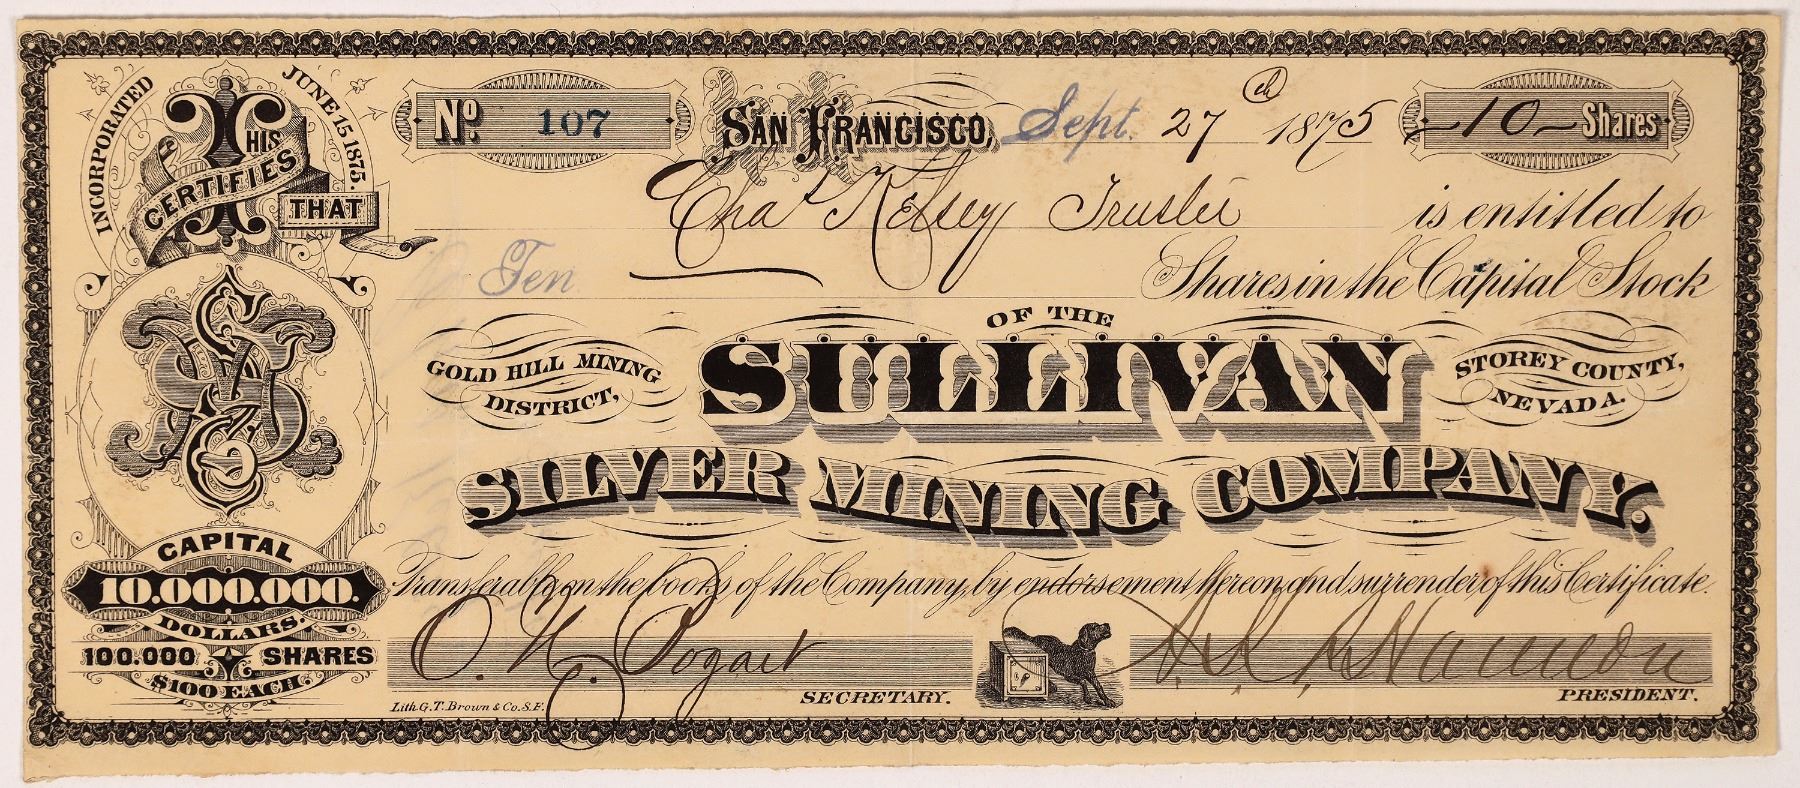 INCORPORATED JUNE 15 1875.
THIS CERTIFIES THAT
No. 107
SAN FRANCISCO, Sept. 27th 1875
10 Shares
Chas Kelsey Trustee is entitled to
Ten Shares in the Capital Stock
OF THE
GOLD HILL MINING DISTRICT,
SULLIVAN
STOREY COUNTY, NEVADA.
SILVER MINING COMPANY.
Transferable on the books of the Company, by endorsement hereon and surrender of this Certificate.
CAPITAL
10.000.000.
DOLLARS.
100.000 SHARES
$100 EACH.
SECRETARY.
PRESIDENT.
Lith. G. T. Brown & Co. S.F.